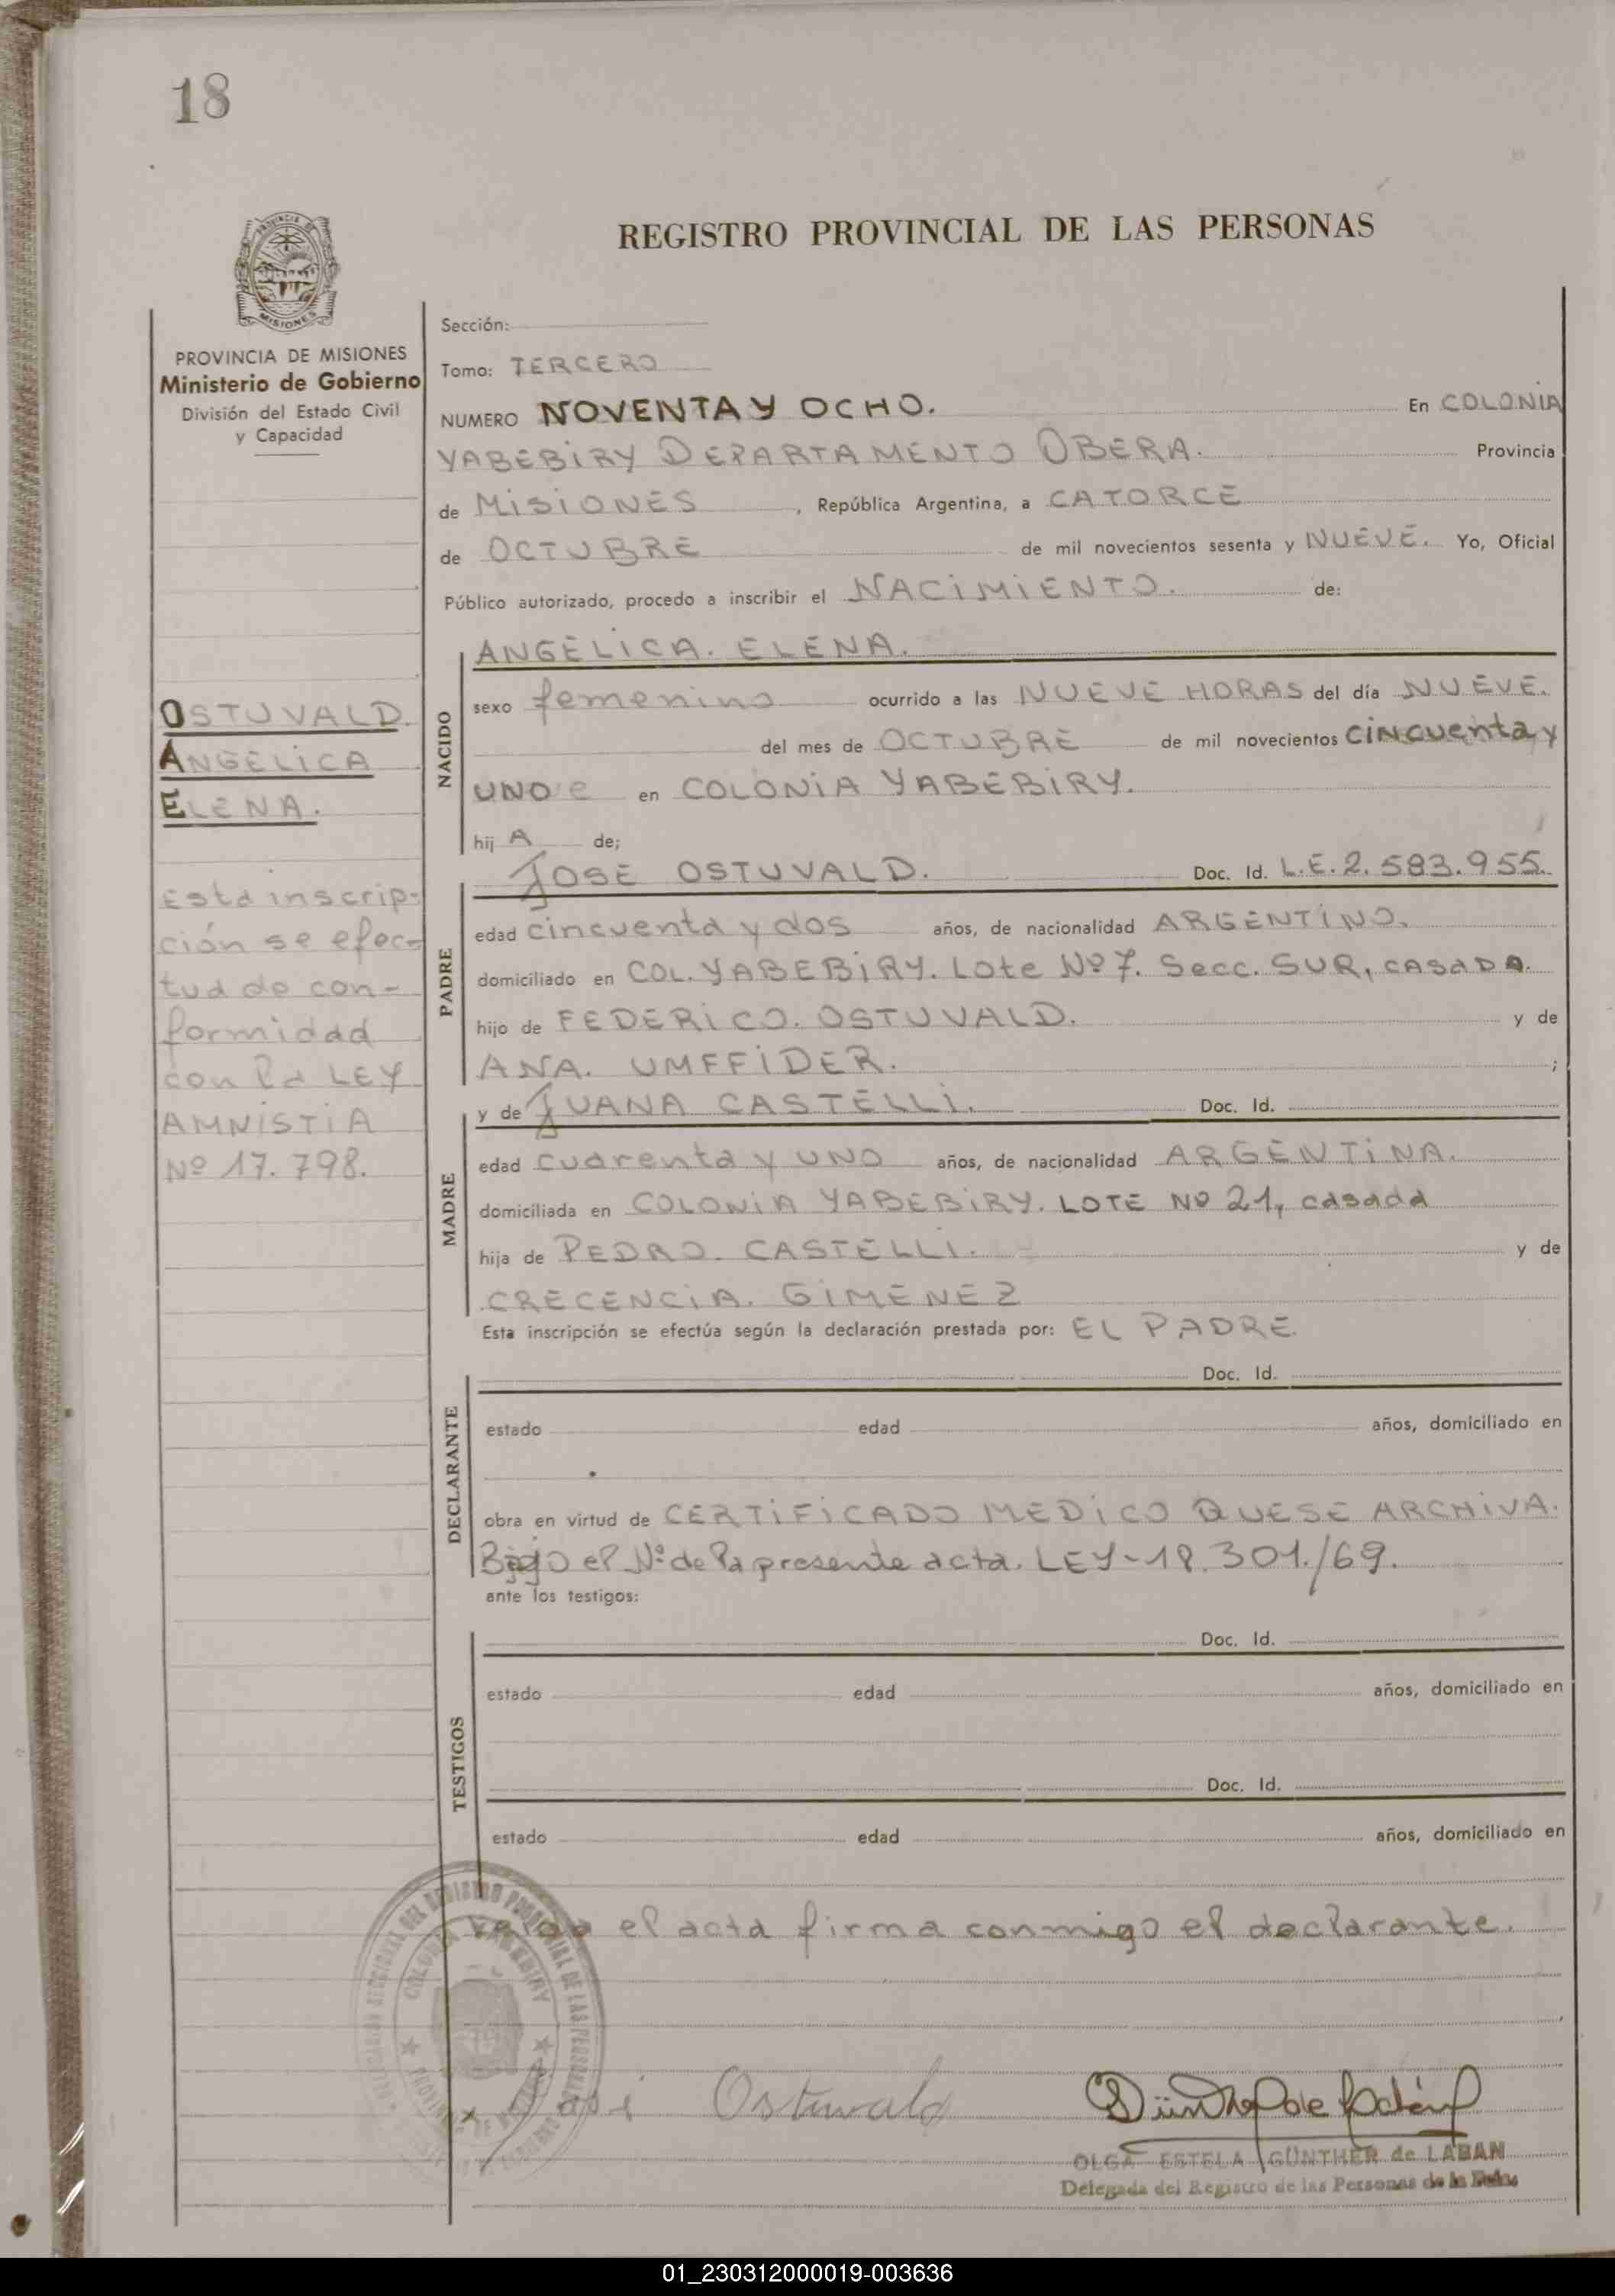 18
REGISTRO PROVINCIAL DE LAS PERSONAS
PROVINCIA
MISIONES
PROVINCIA DE MISIONES
Ministerio de Gobierno
División del Estado Civil
y Capacidad
OSTUVALD.
ANGELICA
ELENA.
Esta inscrip-
ción se efec-
tua de con-
formidad
con la LEY
AMNISTIA
Nº 17.798.
Sección:
Tomo: TERCERO
NUMERO NOVENTA Y OCHO. En COLONIA
YABEBIRY DEPARTAMENTO OBERA. Provincia
de MISIONES, República Argentina, a CATORCE
de OCTUBRE de mil novecientos sesenta y NUEVE. Yo, Oficial
Público autorizado, procedo a inscribir el NACIMIENTO. de:
NACIDO
ANGELICA. ELENA.
sexo femenino ocurrido a las NUEVE HORAS del día NUEVE.
del mes de OCTUBRE de mil novecientos CINCUENTA y
UNO e en COLONIA YABEBIRY.
hij A de;
PADRE
JOSE OSTUVALD. Doc. Id. L.E. 2.583.955.
edad cincuenta y dos años, de nacionalidad ARGENTINO.
domiciliado en COL. YABEBIRY. Lote Nº 7. Secc. SUR, CASADO.
hijo de FEDERICO. OSTUVALD. y de
ANA. UMFFIDER. ;
MADRE
y de JUANA CASTELLI. Doc. Id.
edad cuarenta y UNO años, de nacionalidad ARGENTINA.
domiciliada en COLONIA YABEBIRY. LOTE Nº 21, casada
hija de PEDRO. CASTELLI. y de
CRECENCIA. GIMENEZ
Esta inscripción se efectúa según la declaración prestada por: EL PADRE.
DECLARANTE
Doc. Id.
estado edad años, domiciliado en
obra en virtud de CERTIFICADO MEDICO QUE SE ARCHIVA.
Bajo el Nº de la presente acta. LEY-18.301./69.
ante los testigos:
TESTIGOS
Doc. Id.
estado edad años, domiciliado en
Doc. Id.
estado edad años, domiciliado en
el acta firma conmigo el declarante.
Ostuvald
Günther de Labán
OLGA ESTELA GÜNTHER de LABAN
Delegada del Registro de las Personas de la
01_230312000019-003636